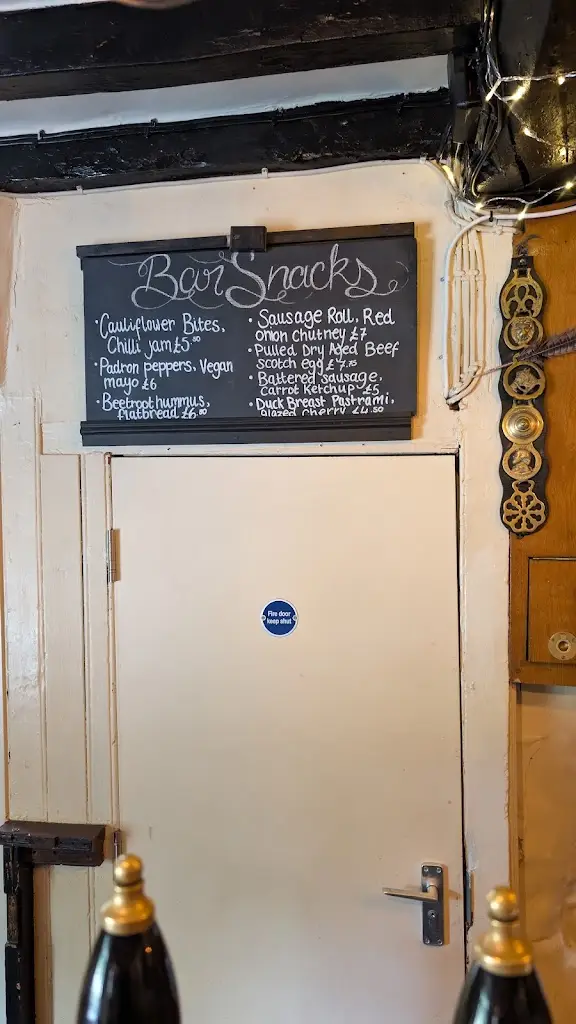 Bar Snacks
• Cauliflower Bites,
Chilli jam £5.50
• Padron peppers, Vegan
mayo £6
• Beetroot hummus,
flatbread £6.50
• Sausage Roll, Red
onion chutney £7
• Pulled Dry Aged Beef
scotch egg £7.75
• Battered sausage,
Carrot Ketchup £5
• Duck Breast Pastrami,
glazed cherry £4.50
Fire door
keep shut